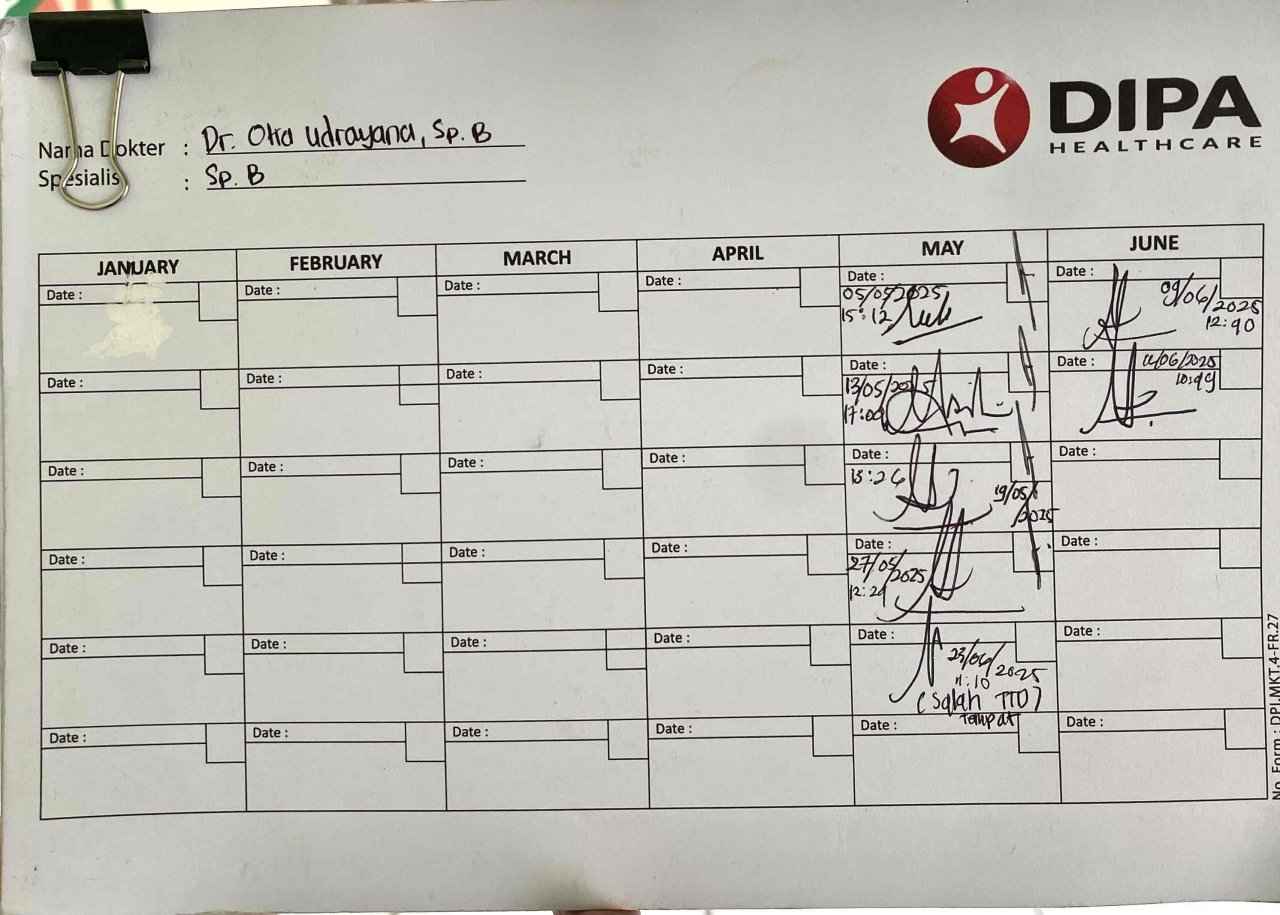 DIPA
HEALTHCARE
Nama Dokter : Dr. Oka Udrayana, Sp. B
Spesialis : Sp. B
JANUARY FEBRUARY MARCH APRIL MAY JUNE
Date : Date : Date : Date : Date : Date :
05/05/2025 09/06/2025
15:12 12:40
Date : Date : Date : Date : Date : Date : 11/06/2025
13/05/2025 10:49
17:00
Date : Date : Date : Date : Date : Date :
15:26 19/05/2025
Date : Date : Date : Date : Date : Date :
27/05/2025
Date : Date : Date : Date : Date : Date :
23/06/2025
11:10
(Salah TTD)
Tempat
Date : Date : Date : Date : Date : Date :
No. Form : DPI.MKT.4-FR.27